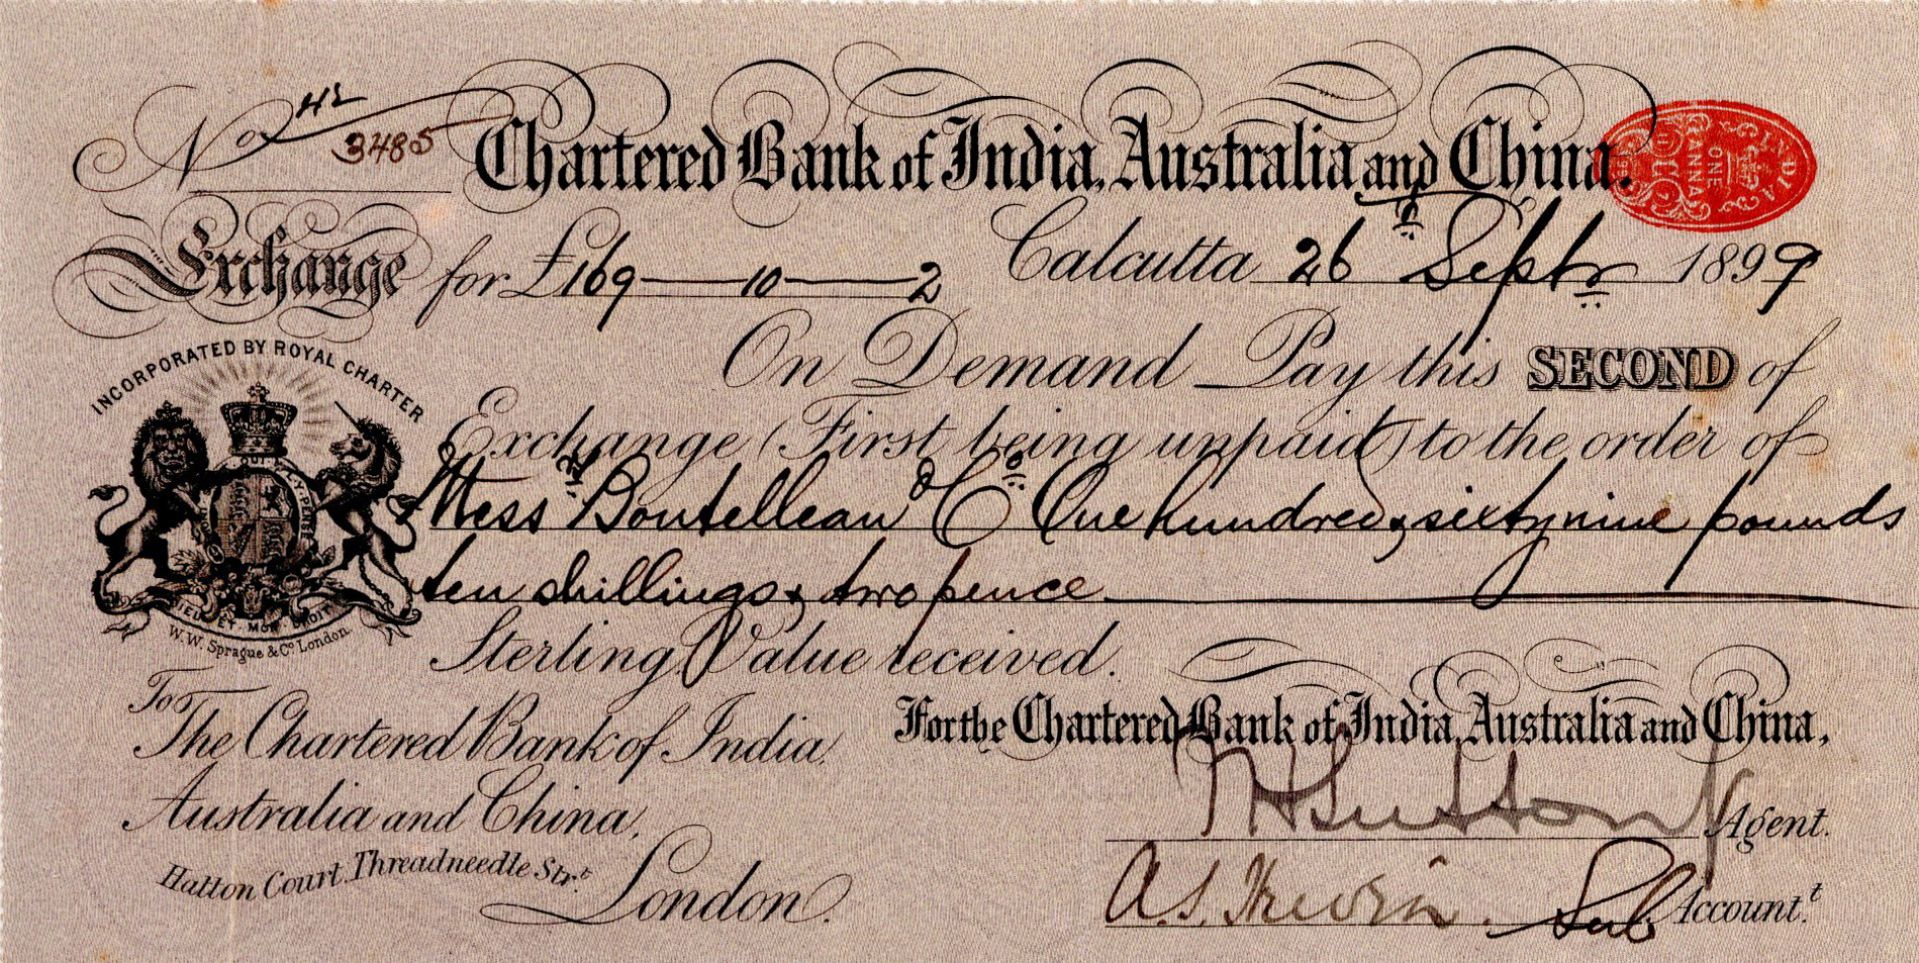 No 42/3485
Chartered Bank of India, Australia and China.
INDIA
ONE
ANNA
Exchange for £169—10—2 Calcutta 26th Septr 1899
On Demand Pay this SECOND of
Exchange (First being unpaid) to the order of
Messrs Boutelleau & Co One hundred & sixty nine pounds
ten shillings & two pence
Sterling Value received.
INCORPORATED BY ROYAL CHARTER
DIEU ET MON DROIT
W. W. Sprague & Co London.
To
The Chartered Bank of India,
Australia and China,
Hatton Court Threadneedle Strt
London.
For the Chartered Bank of India, Australia and China,
Sutton Agent.
A. S. Sub Accountt.